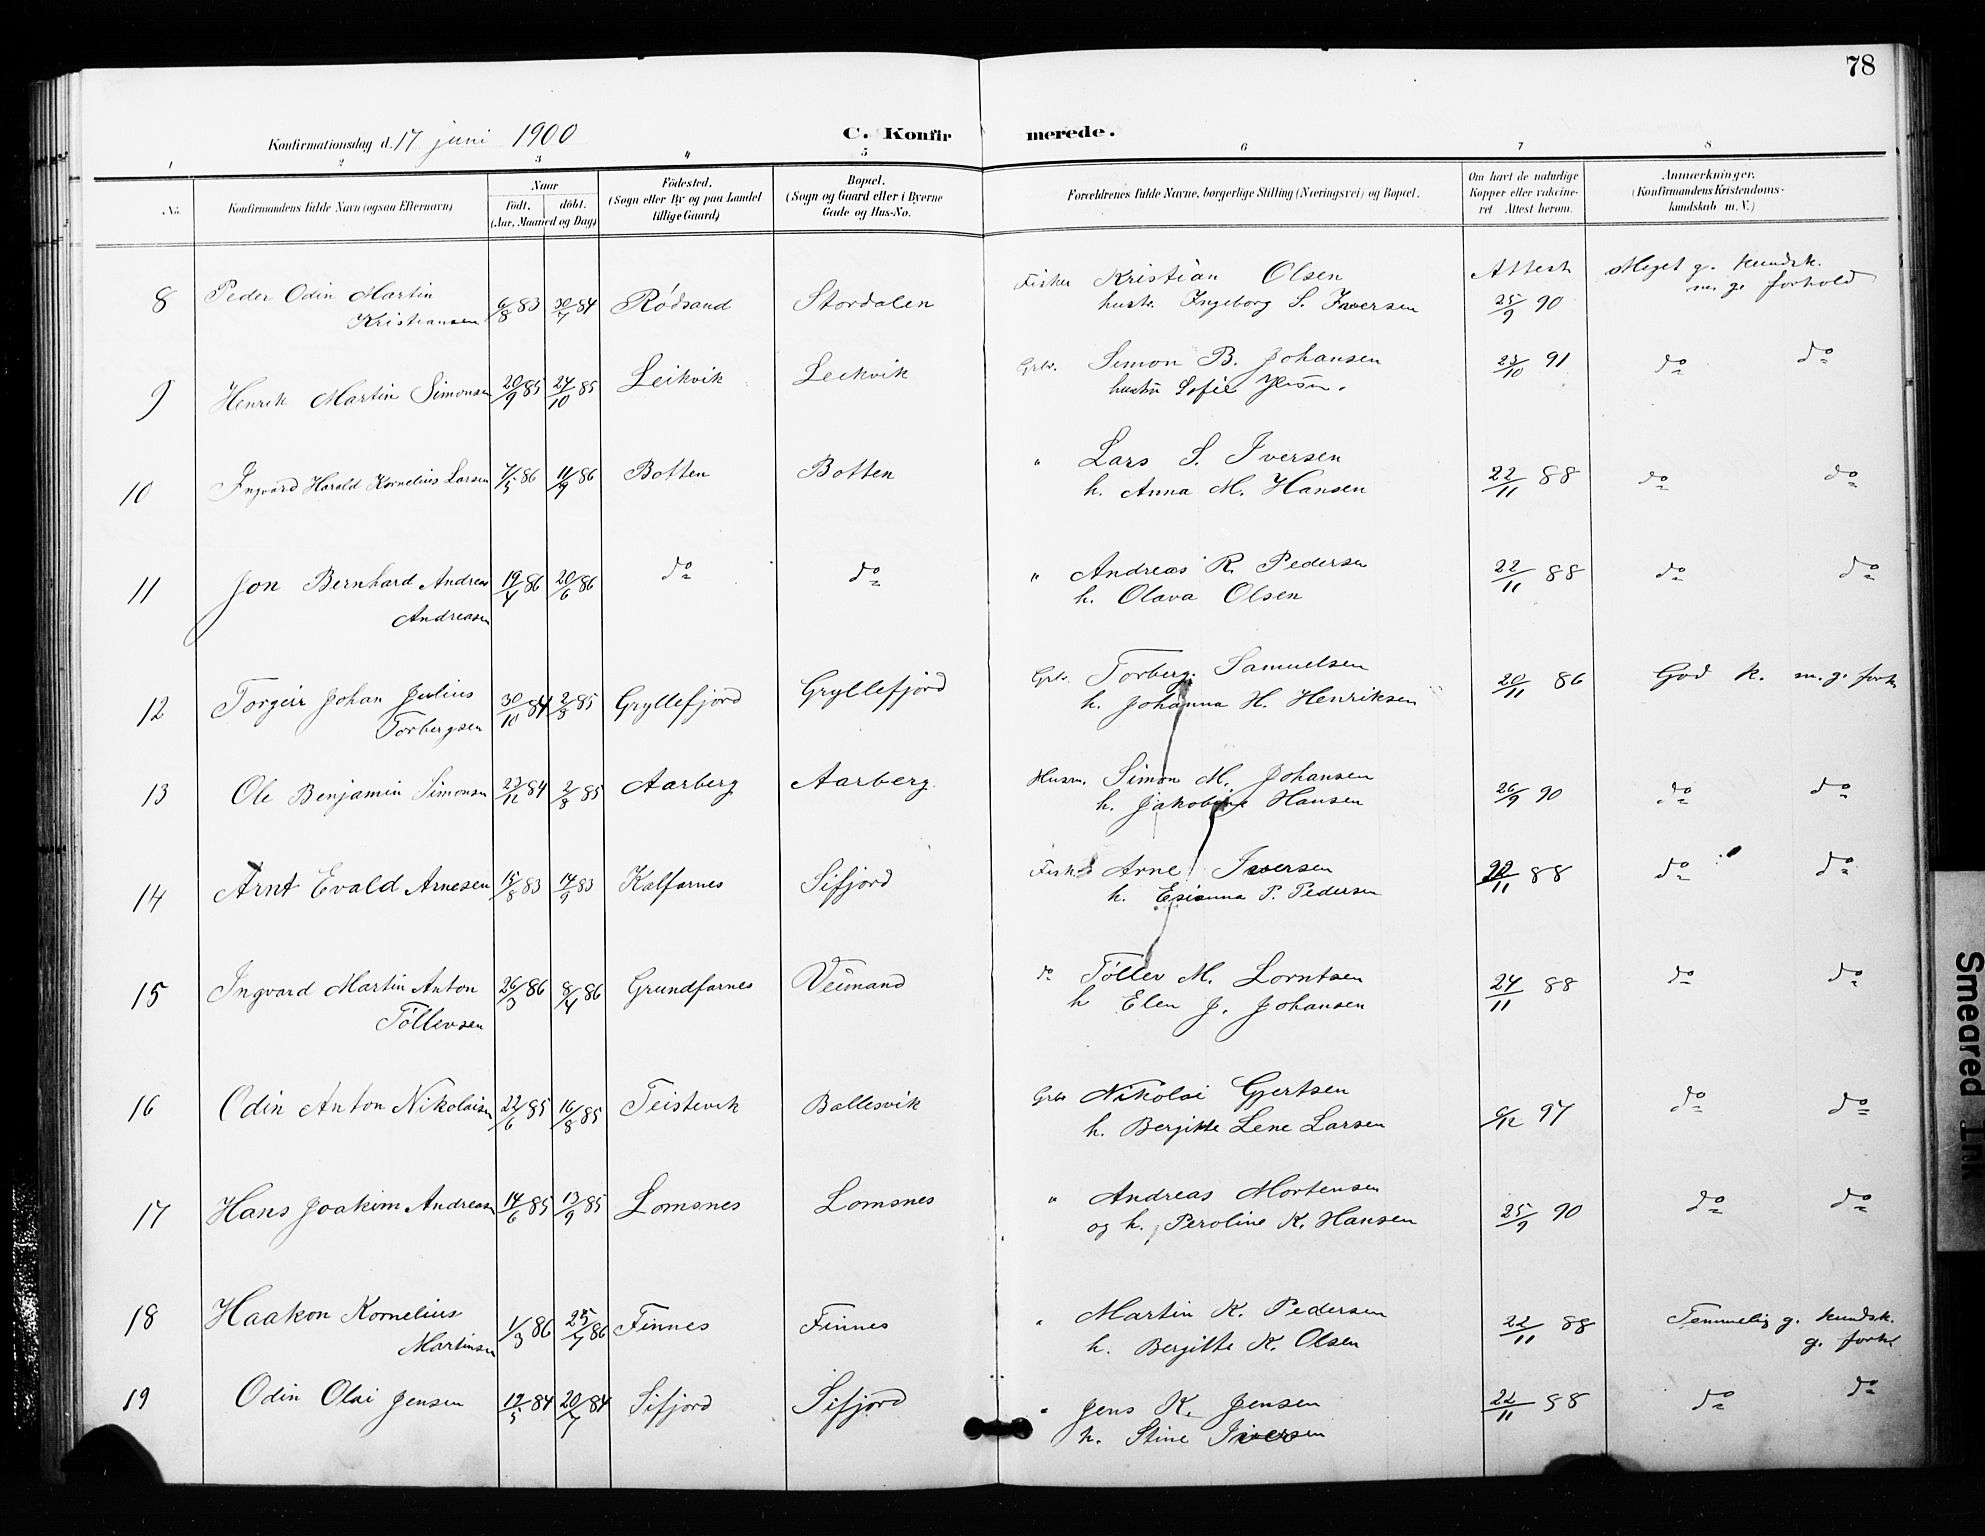 78
Konfirmationsdag d. 17 juni 1900
C. Konfirmerede.
1 2 3 4 5 6 7 8
No.
Konfirmandens fulde Navn (ogsaa Efternavn)
Naar
født. døbt.
(Aar, Maaned og Dag)
Fødested.
(Sogn eller By og paa Landet
tillige Gaard)
Bopæl.
(Sogn og Gaard eller i Byerne
Gade og Hus-No.
Forældrenes fulde Navne, borgerlige Stilling (Næringsvei) og Bopæl.
Om havt de naturlige
Kopper eller vakcineret. Attest herom.
Anmærkninger.
(Konfirmandens Kristendoms-
kundskab m. V.)
8 Peder Odin Martin 6/8 83 30/7 84 Rødsand Stordalen Fisker Kristian Olsen Attest Meget g. kundsk.
Kristiansen hustr. Ingeborg S. Iversen 25/9 90 m. g. forhold
9 Henrik Martin Simonsen 20/9 85 24/10 85 Leikvik Leikvik Grbr. Simon B. Johansen 23/10 91 do do
hustru Sofie
10 Ingvard Harald Kornelius Larsen 7/5 86 11/9 86 Botten Botten " Lars S. Iversen 22/11 88 do do
h. Anna M. Hansen
11 Jon Bernhard Andreas 19/4 86 20/6 86 do do " Andreas R. Pedersen 22/11 88 do do
Andreasen h. Olava Olsen
12 Torgeir Johan Julius 30/10 84 2/8 85 Gryllefjord Gryllefjord Grbr. Torberg Samuelsen 20/11 86 God k. m. g. forh.
Torbergsen h. Johanna H. Henriksen
13 Ole Benjamin Simonsen 84 2/8 85 Aarberg Aarberg. Husm. Simon M. Johansen 26/9 90 do do
h. Jakobine Hansen
14 Arnt Evald Arnesen 15/8 83 14/9 83 Kalfarnes Sifjord Fisker Arne Iversen 22/11 88 do do
h. Esianna P. Pedersen
15 Ingvard Martin Anton 26/3 86 8/4 86 Grundfarnes Veimand do Tøllev M. Lorntsen 24/11 88 do do
Tøllevsen h Elen J. Johansen
16 Odin Anton Nikolaisen 22/6 85 16/8 85 Teistevik Ballesvik Grbr Nikolai Gjertsen 6/12 97 do do
h. Bergitte Lene Larsen
17 Hans Joakim Andreasen 14/6 85 13/9 85 Lomsnes Lomsnes " Andreas Mortensen 25/9 90 do do
og h. Peroline K. Hansen
18 Haakon Kornelius 1/3 86 25/7 86 Finnes Finnes " Martin K. Pedersen 22/11 88 Temmelig g. kundsk.
Martinsen h. Bergitte K. Olsen g. forh.
19 Odin Olai Jensen 12/5 84 20/7 84 Sifjord Sifjord " Jens K. Jensen 22/11 88 do do
h. Stine Iversen
Smeared Ink